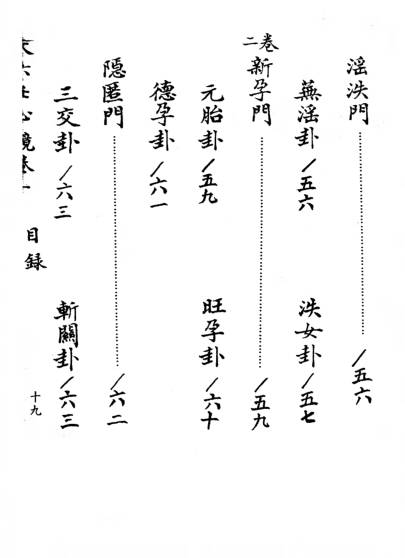 淫泆門……………/五六
蕪淫卦/五六　泆女卦/五七
卷二
新孕門……………/五九
元胎卦/五九　旺孕卦/六十
德孕卦/六一
隱匿門……………/六二
三交卦/六三　斬關卦/六三
心鏡卷一　目錄　十九